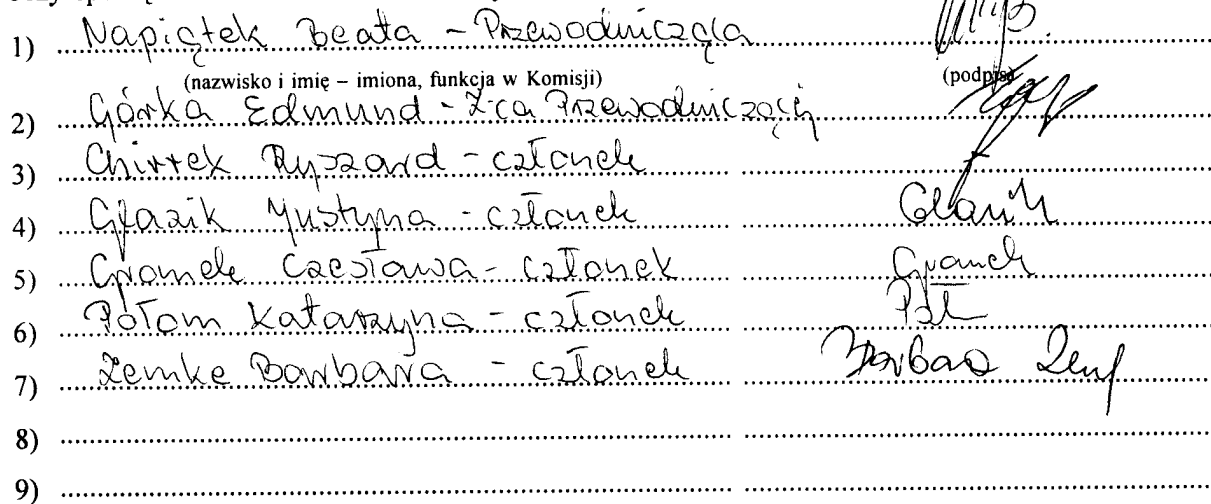 1) Napiątek Beata - Przewodnicząca
(nazwisko i imię – imiona, funkcja w Komisji) (podpis)
2) Górka Edmund - Z-ca Przewodniczącej
3) Chirrek Ryszard - członek
4) Głazik Justyna - członek Glazik
5) Gromek Czesława - członek Gromek
6) Połom Katarzyna - członek
7) Zemke Barbara - członek Barbara
8)
9)